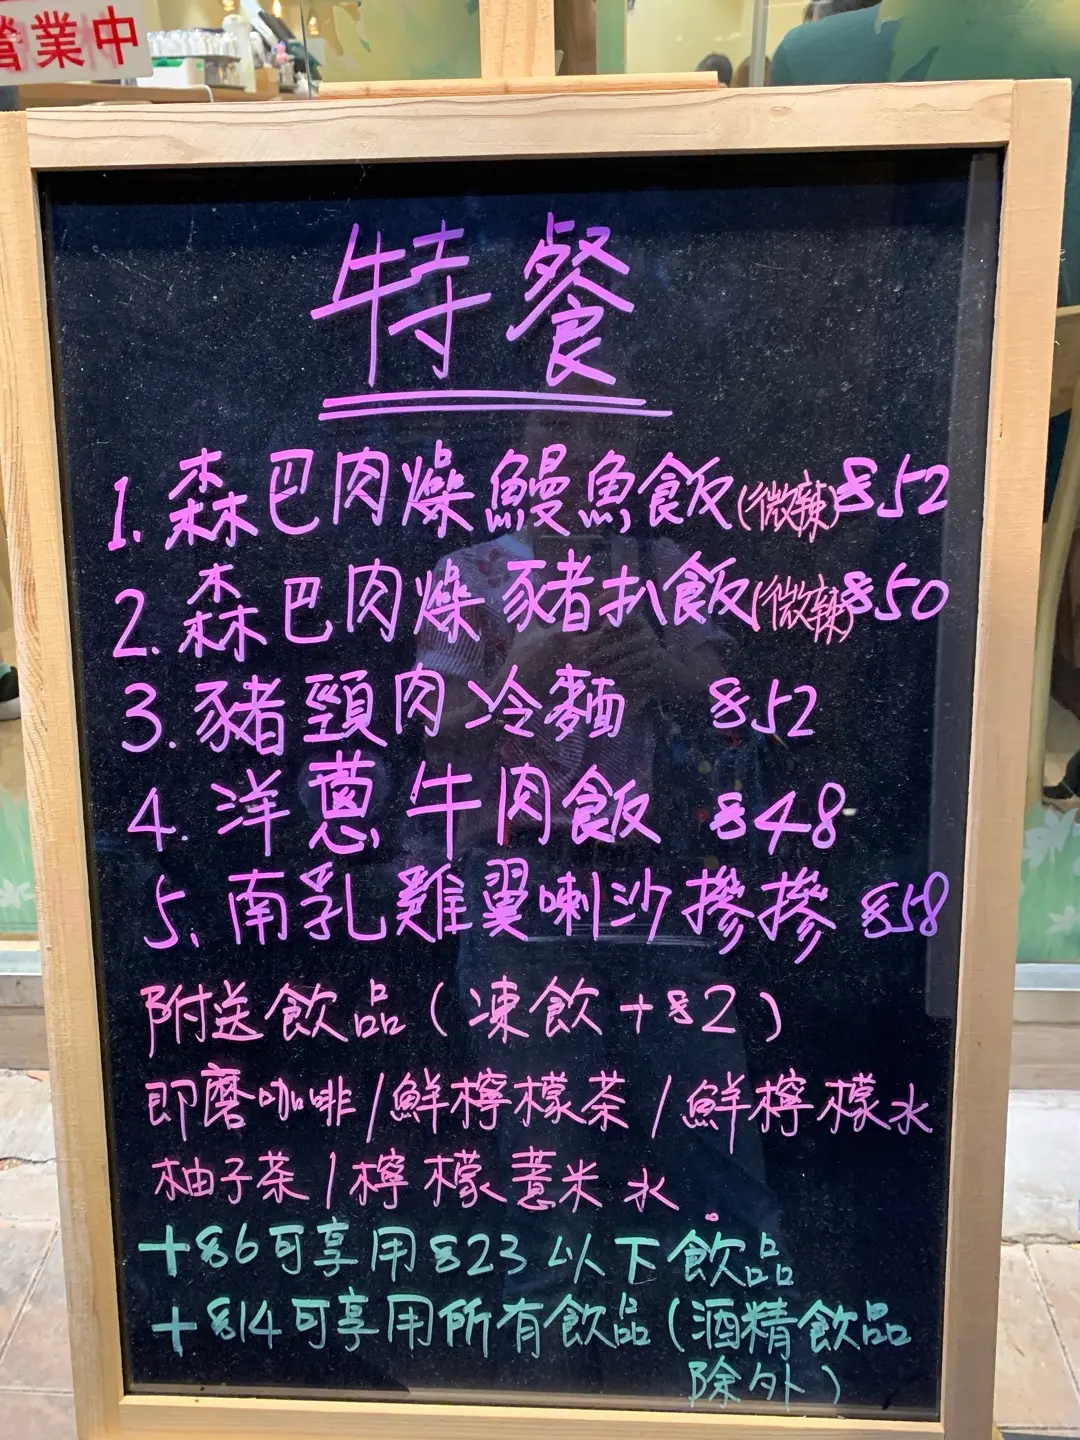 營業中
特餐
1. 森巴肉燥鰻魚飯(微辣)$52
2. 森巴肉燥豬扒飯(微辣)$50
3. 豬頸肉冷麵 $52
4. 洋蔥牛肉飯 $48
5. 南乳雞翼喇沙摻摻 $58
附送飲品(凍飲+$2)
即磨咖啡/鮮檸檬茶/鮮檸檬水
柚子茶/檸檬薏米水。
+$6可享用$23以下飲品
+$14可享用所有飲品(酒精飲品
除外)